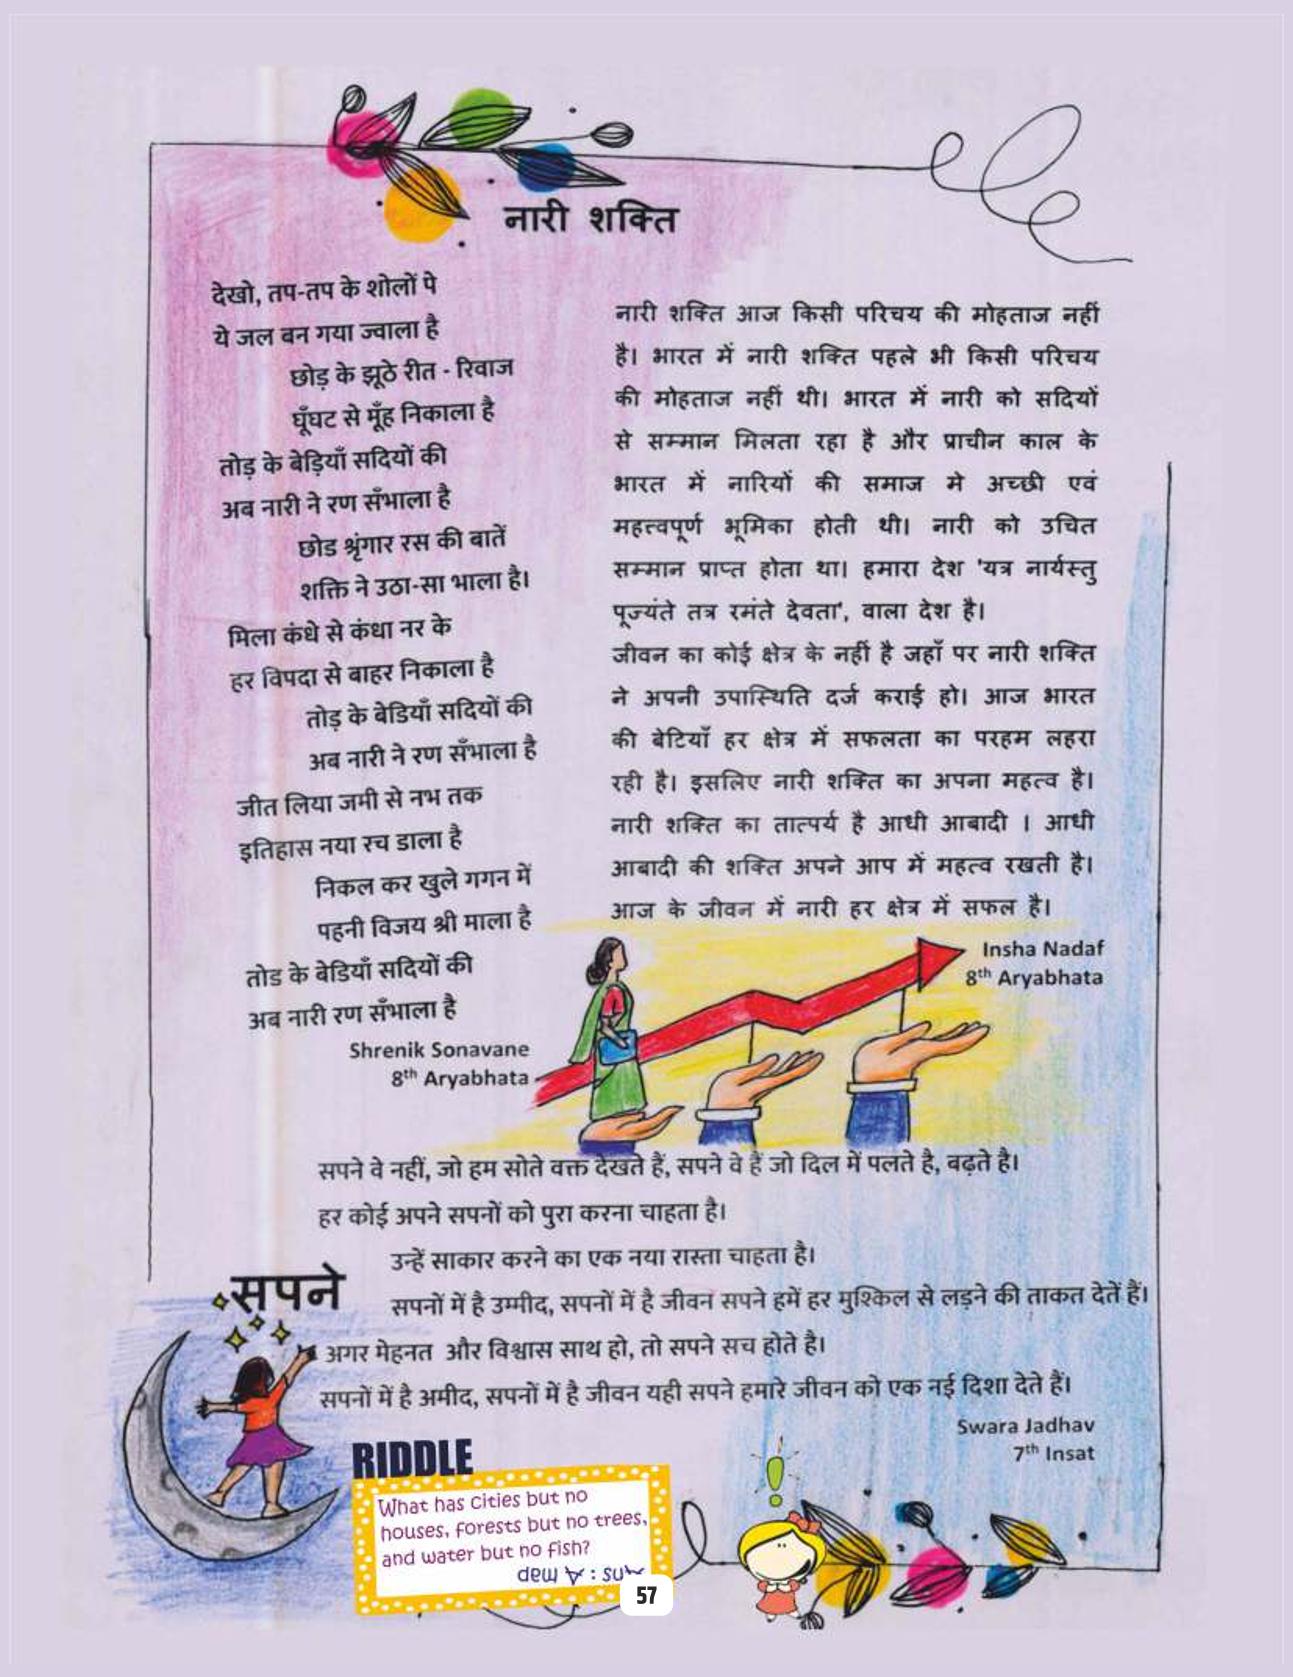 नारी शक्ति
देखो, तप-तप के शोलों पे
ये जल बन गया ज्वाला है
छोड़ के झूठे रीत - रिवाज
घूँघट से मूँह निकाला है
तोड़ के बेड़ियाँ सदियों की
अब नारी ने रण सँभाला है
छोड श्रृंगार रस की बातें
शक्ति ने उठा-सा भाला है।
मिला कंधे से कंधा नर के
हर विपदा से बाहर निकाला है
तोड़ के बेडियाँ सदियों की
अब नारी ने रण सँभाला है
जीत लिया जमी से नभ तक
इतिहास नया रच डाला है
निकल कर खुले गगन में
पहनी विजय श्री माला है
तोड के बेडियाँ सदियों की
अब नारी रण सँभाला है
Shrenik Sonavane
8th Aryabhata
नारी शक्ति आज किसी परिचय की मोहताज नहीं
है। भारत में नारी शक्ति पहले भी किसी परिचय
की मोहताज नहीं थी। भारत में नारी को सदियों
से सम्मान मिलता रहा है और प्राचीन काल के
भारत में नारियों की समाज मे अच्छी एवं
महत्त्वपूर्ण भूमिका होती थी। नारी को उचित
सम्मान प्राप्त होता था। हमारा देश 'यत्र नार्यस्तु
पूज्यंते तत्र रमंते देवता', वाला देश है।
जीवन का कोई क्षेत्र के नहीं है जहाँ पर नारी शक्ति
ने अपनी उपास्थिति दर्ज कराई हो। आज भारत
की बेटियाँ हर क्षेत्र में सफलता का परहम लहरा
रही है। इसलिए नारी शक्ति का अपना महत्व है।
नारी शक्ति का तात्पर्य है आधी आबादी । आधी
आबादी की शक्ति अपने आप में महत्व रखती है।
आज के जीवन में नारी हर क्षेत्र में सफल है।
Insha Nadaf
8th Aryabhata
सपने
सपने वे नहीं, जो हम सोते वक्त देखते हैं, सपने वे हैं जो दिल में पलते है, बढ़ते है।
हर कोई अपने सपनों को पुरा करना चाहता है।
उन्हें साकार करने का एक नया रास्ता चाहता है।
सपनों में है उम्मीद, सपनों में है जीवन सपने हमें हर मुश्किल से लड़ने की ताकत देतें हैं।
अगर मेहनत और विश्वास साथ हो, तो सपने सच होते है।
सपनों में है अमीद, सपनों में है जीवन यही सपने हमारे जीवन को एक नई दिशा देते हैं।
Swara Jadhav
7th Insat
RIDDLE
What has cities but no
houses, forests but no trees,
and water but no fish?
Ans : A map
57